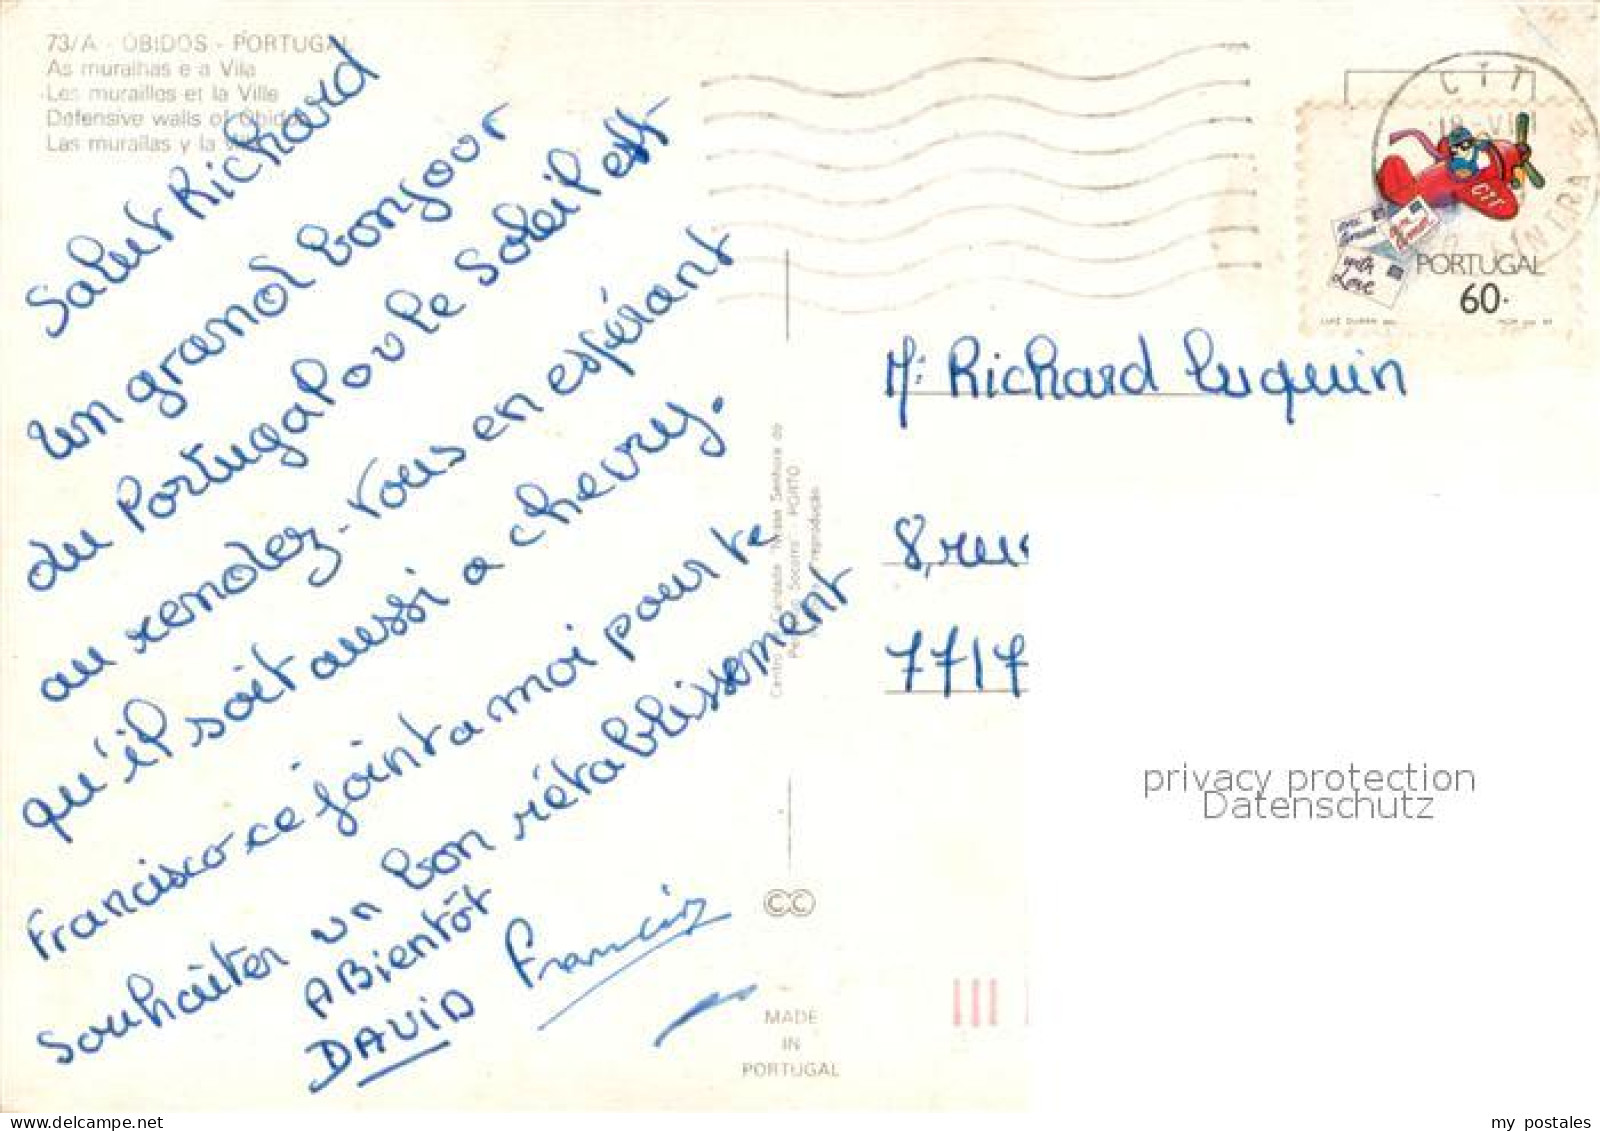 73/A - ÓBIDOS - PORTUGAL
As muralhas e a Vila
Les murailles et la Ville
Defensive walls of Óbidos
Las murallas y la
Salut Richard
un grand bonjour
du Portugal où le Soleil est
au rendez-vous en espérant
qu'il soit aussi a chevry.
Francisco ce joint a moi pour te
souhaiter un bon rétablissement
A Bientôt
DAVID Francis
Centro de Caridade "Nossa Senhora do
Socorro" - PORTO
reprodução
CC
MADE
IN
PORTUGAL
CTT
18-VIII
SINTRA
CTT
with
Love
PORTUGAL
60.
LUIZ DURAN
M: Richard Luquin
8, rue
7717
privacy protection
Datenschutz
my postales